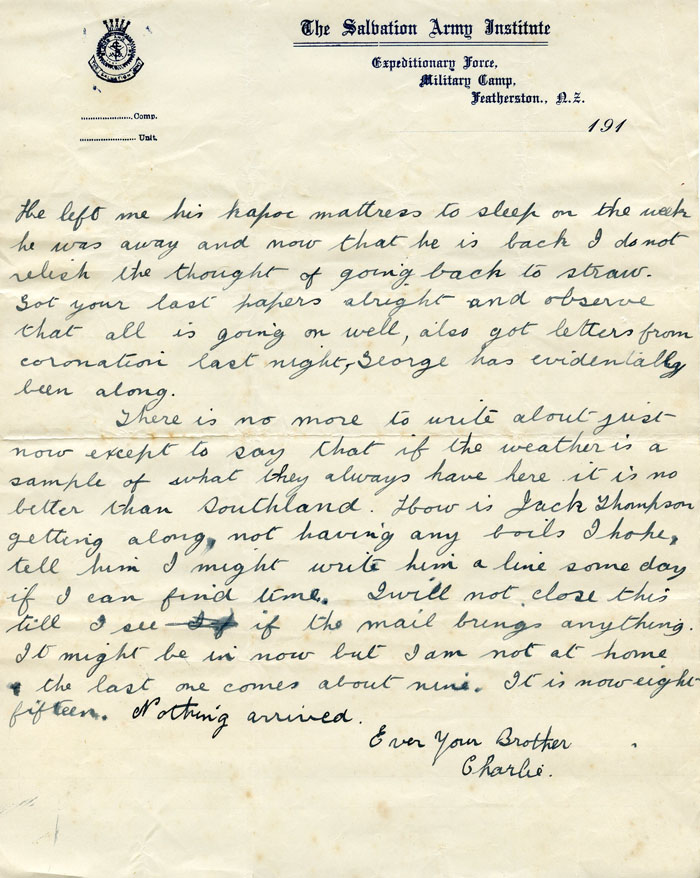 The Salvation Army Institute
Expeditionary Force,
Military Camp,
Featherston., N.Z.
..................Comp.
.................. Unit.
191
He left me his kapoc mattress to sleep on the week
he was away and now that he is back I do not
relish the thought of going back to straw.
Got your last papers alright and observe
that all is going on well, also got letters from
coronation last night, George has evidentally
been along.
There is no more to write about just
now except to say that if the weather is a
sample of what they always have here it is no
better than Southland. How is Jack Thompson
getting along, not having any boils I hope,
tell him I might write him a line some day
if I can find time. I will not close this
till I see if the mail brings anything.
It might be in now but I am not at home
the last one comes about nine. It is now eight
fifteen. Nothing arrived.
Ever Your Brother
Charlie.